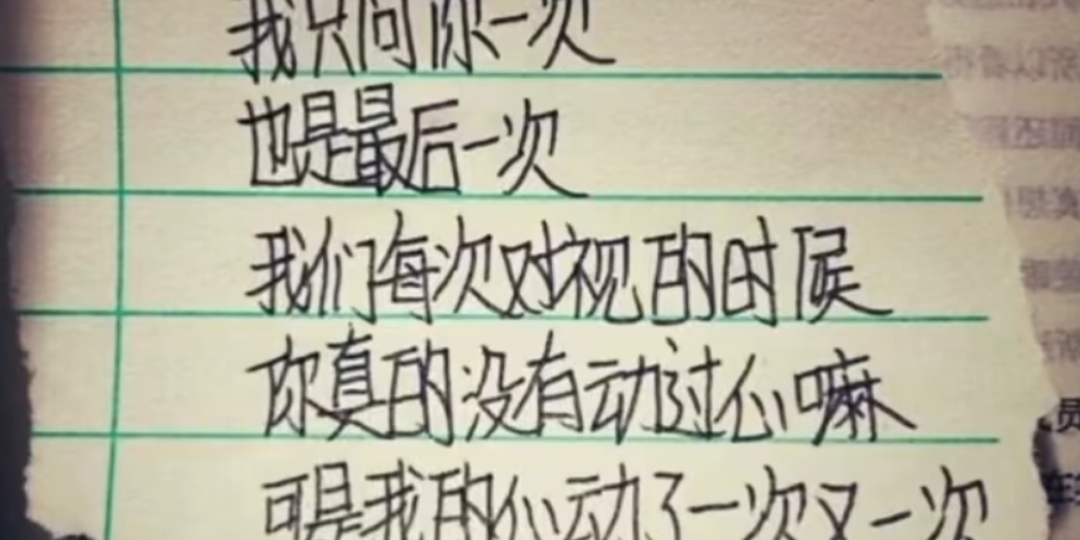 我只问你一次
也是最后一次
我们每次对视的时候
你真的没有动过心嘛
可是我的心动了一次又一次